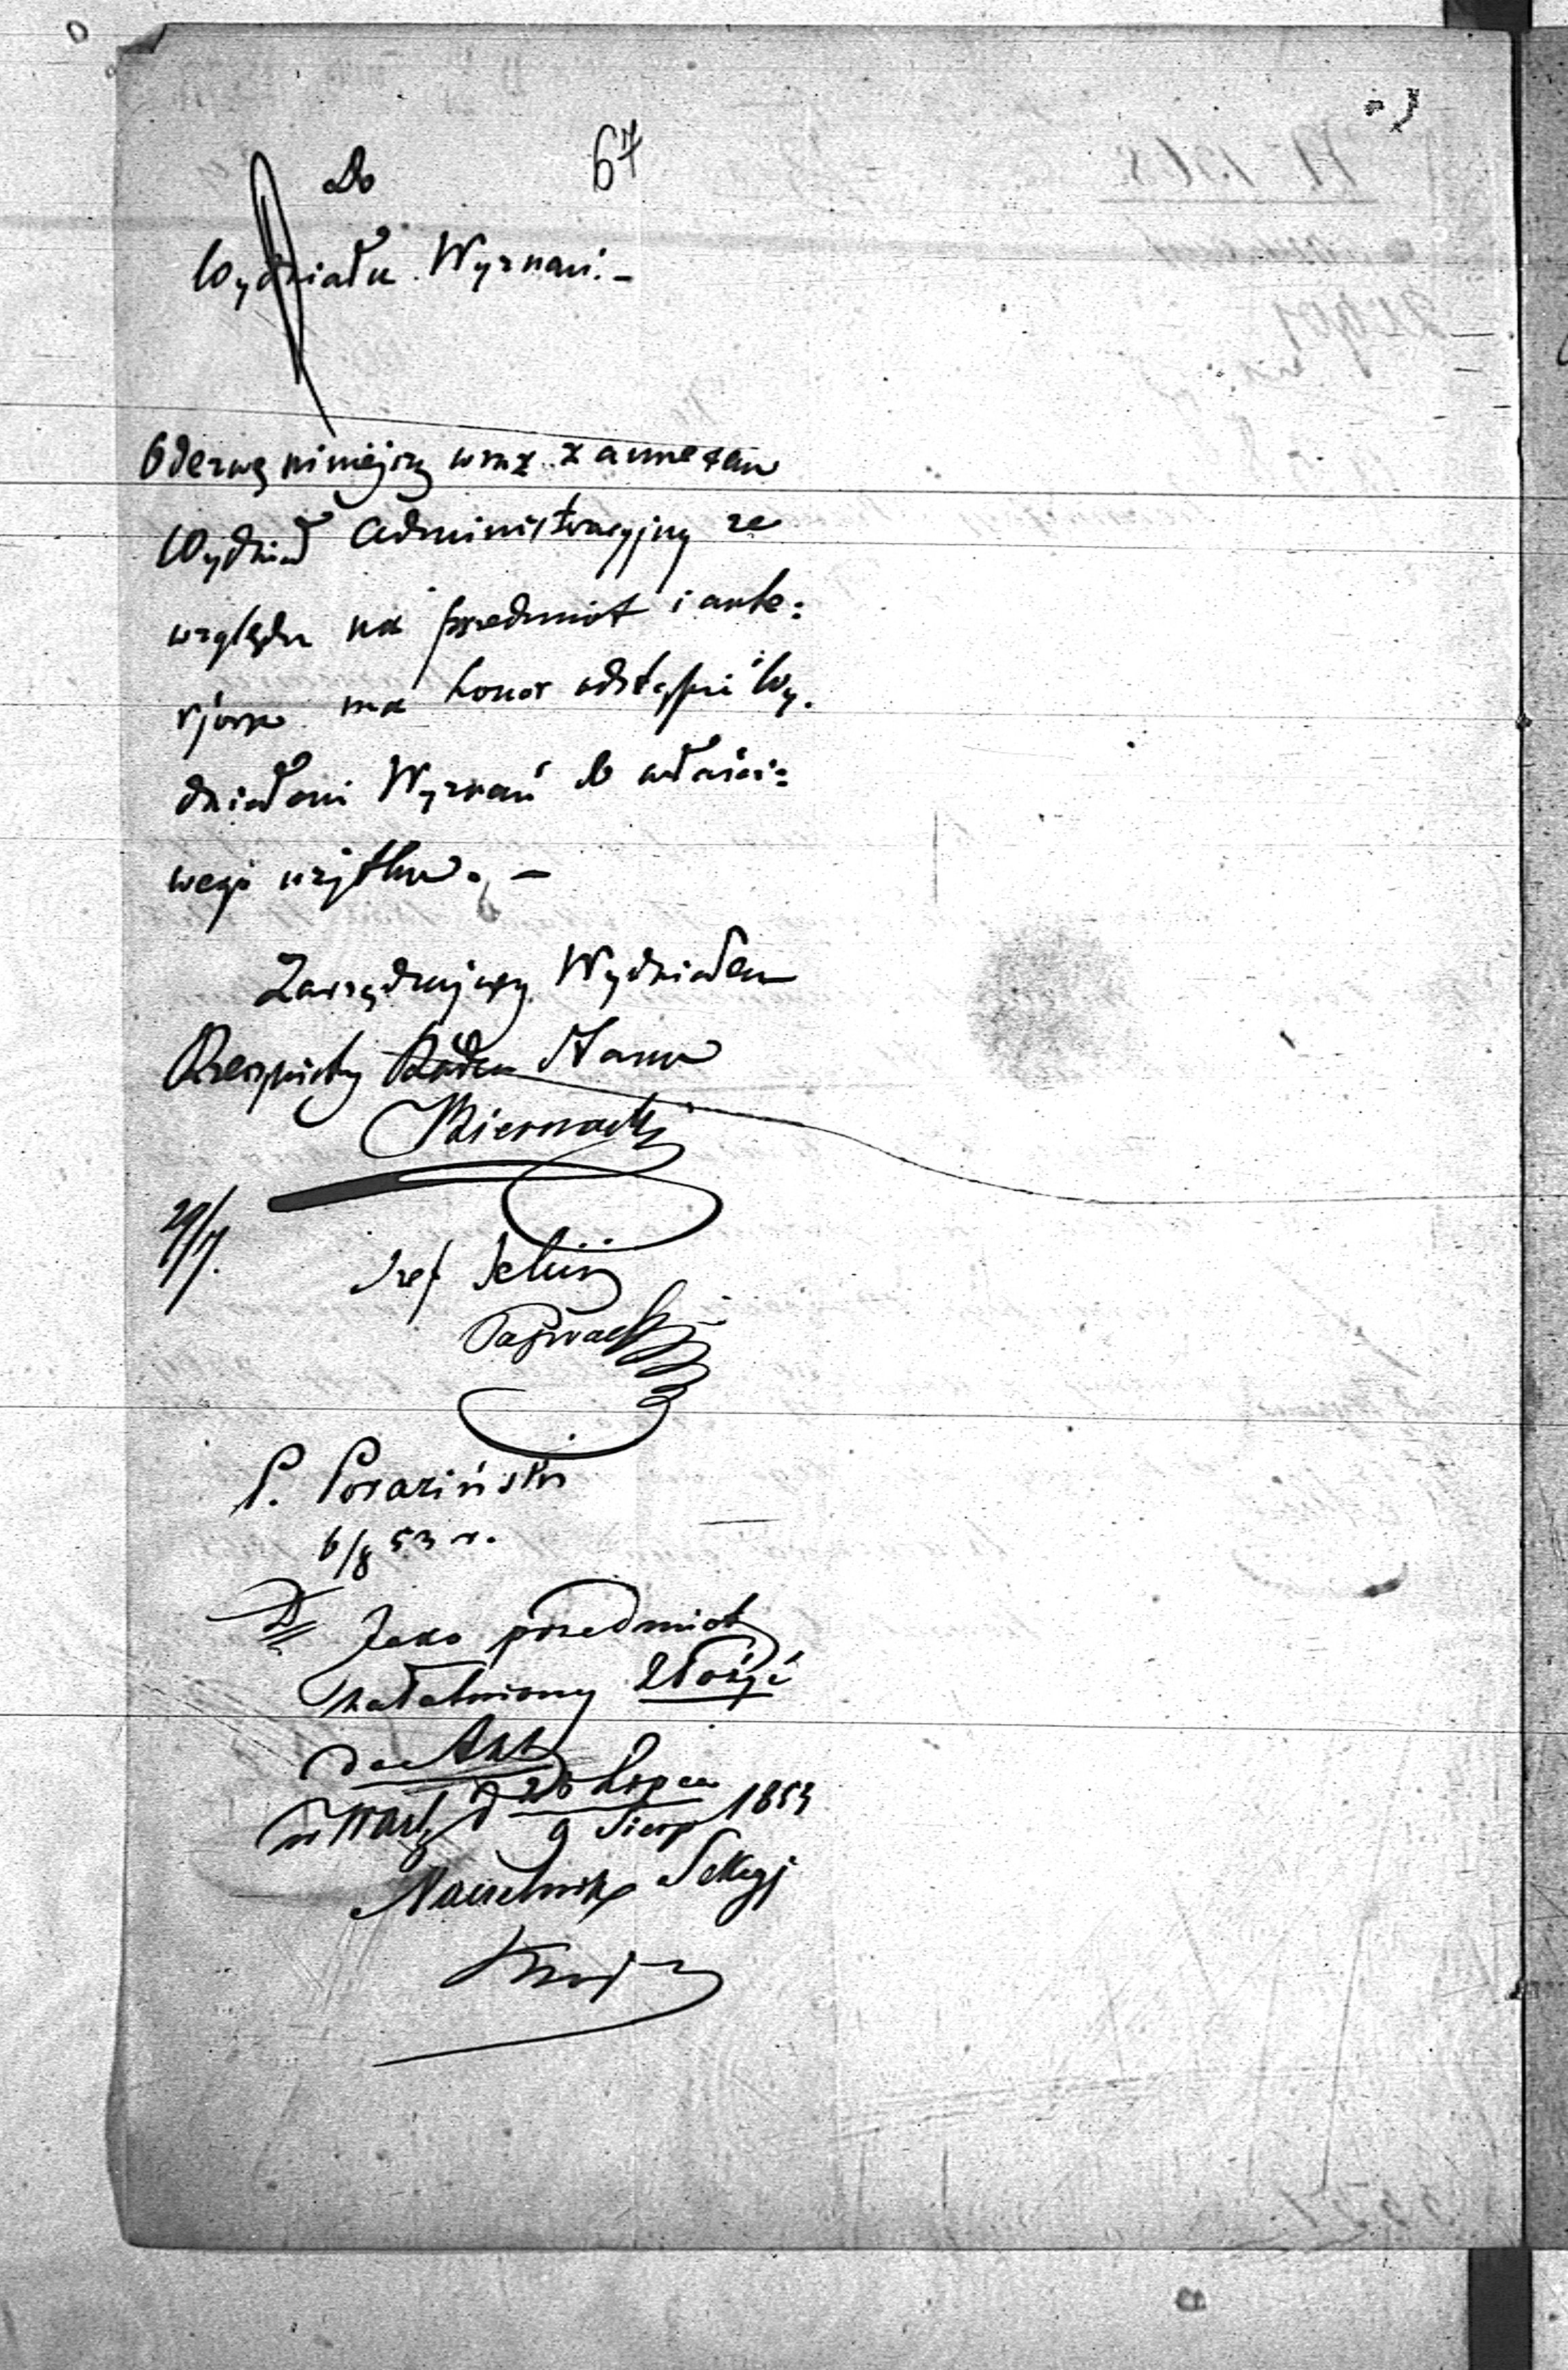 67
Do
Wydziału Wyznań. –
Odezwę niniejszą wraz z annexem
Wydział Administracyjny ze
względu na przedmiot i ante:
rjora ma honor odstąpić Wy.
działowi Wyznań do właści:
wego użytku. –
Zarządzający Wydziałem
Rzeczywisty Radca Stanu
Biernacki
29/7.
Szef Sekcji
P. Poraziński
6/8 53 r.
Jako przedmiot
załatwiony złożyć
do Akt
w Warsz d 28 Lipca
9 Sierp 1853
Naczelnik Sekcyj